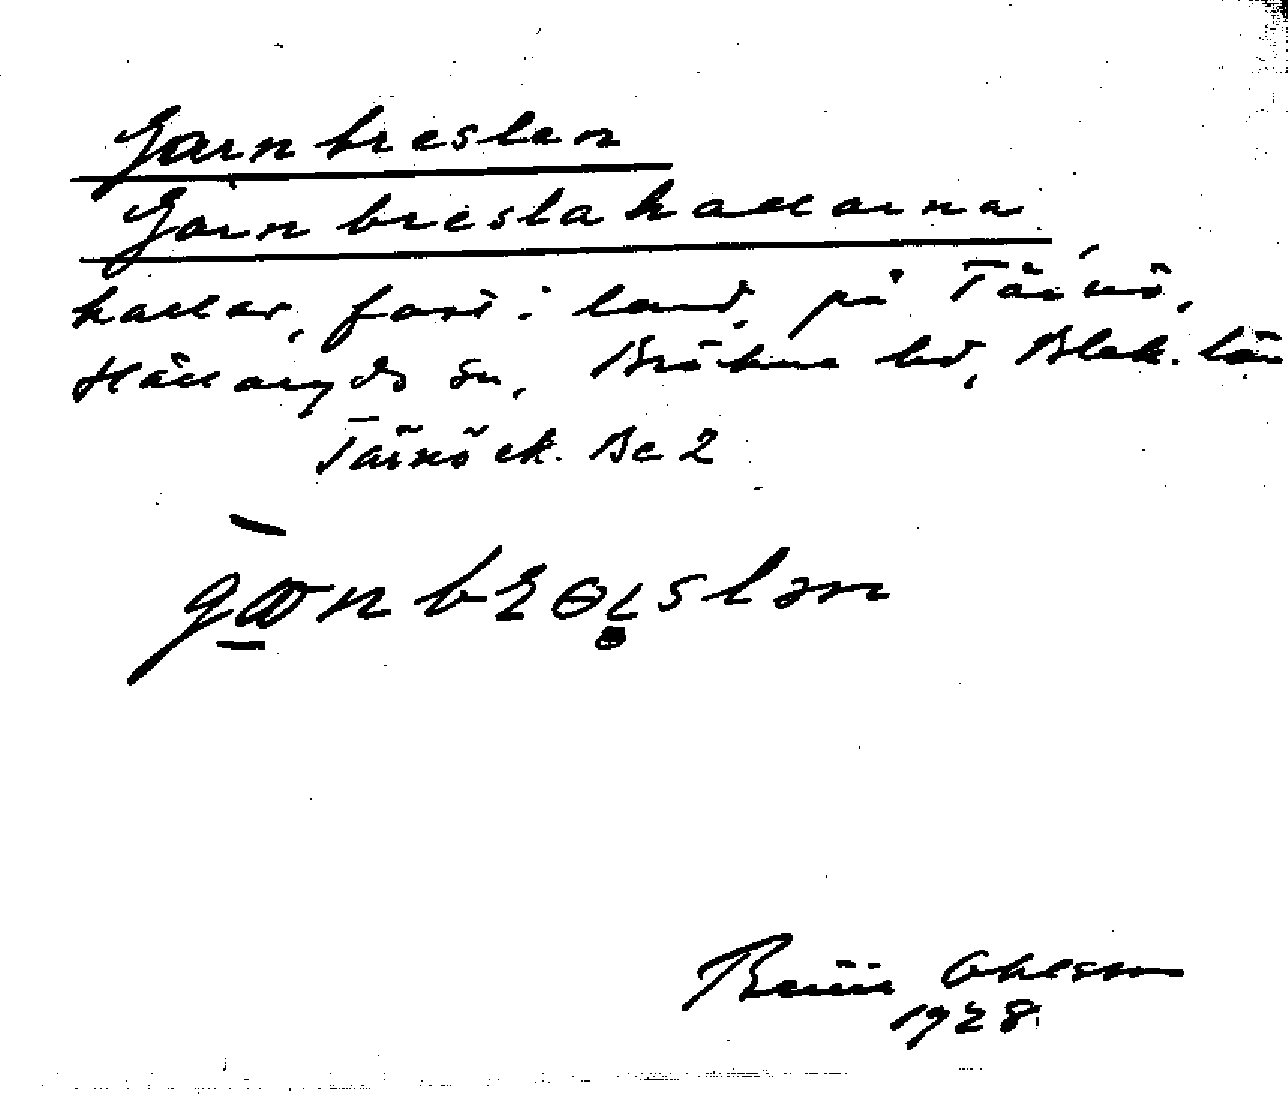 Garnbreslan
Garnbreslahallarna
hallar, fast i land, på Tärnö,
Hällaryds sn, Bräkne hd, Blek. län
Tärnö ek. Bc 2
Ohlsson
1928